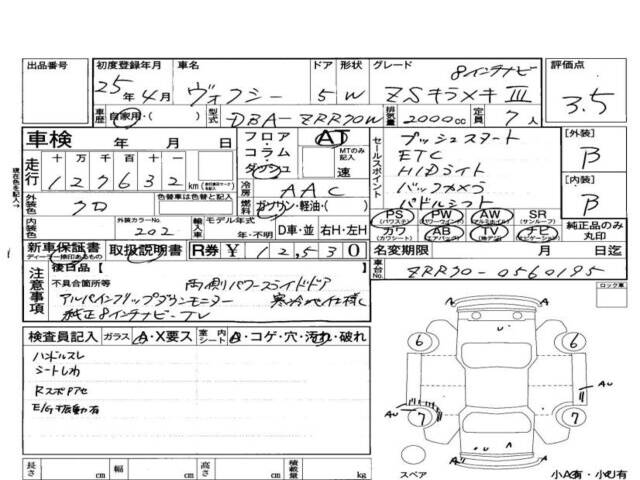 出品番号 初度登録年月 車名 ドア 形状 グレード 評価点
25年4月 ヴォクシー 5 W 8インチナビ ZSキラメキⅢ 3.5
車歴 自家用・( ) 型式 DBA-ZRR70W 排気量 2000cc 定員 7人
車検 年 月 日
フロア・コラム・ダッシュ AT MTのみ記入 速
走行 十万千百十 127632 km
冷房 AAC
燃料 ガソリン・軽油・( )
外装色 クロ 色替車は色替と記入
内装色 外装カラーNo. 202
輸入車 モデル年式 年・不明 D車・並 右H・左H
セールスポイント
プッシュスタート
ETC
HIDライト
バックカメラ
パドルシフト
[外装] B
[内装] B
PS (パワステ) PW (パワーウィンド) AW (アルミホイル) SR (サンルーフ)
カワ (カワシート) AB (エアバック) TV ナビ (ナビゲーション)
純正品のみ丸印
新車保証書 取扱説明書 R券 ¥12,530
名変期限 月 日迄
車台No. ZRR70-0560195
現在色を記入→
注意事項
後日品 [ ]
不具合箇所等 両側パワースライドドア
アルパインフリップダウンモニター 寒冷地仕様
純正8インチナビ TV
ロック車
検査員記入 ガラス A・X要ス 室内シート A・コゲ・穴・汚れ・破れ
ハンドルスレ
シートしわ
E/G振動有
6 6
AU
AU
7 7
スペア
小A有・小U有
長さ cm 幅 cm 高さ cm 積載量 kg